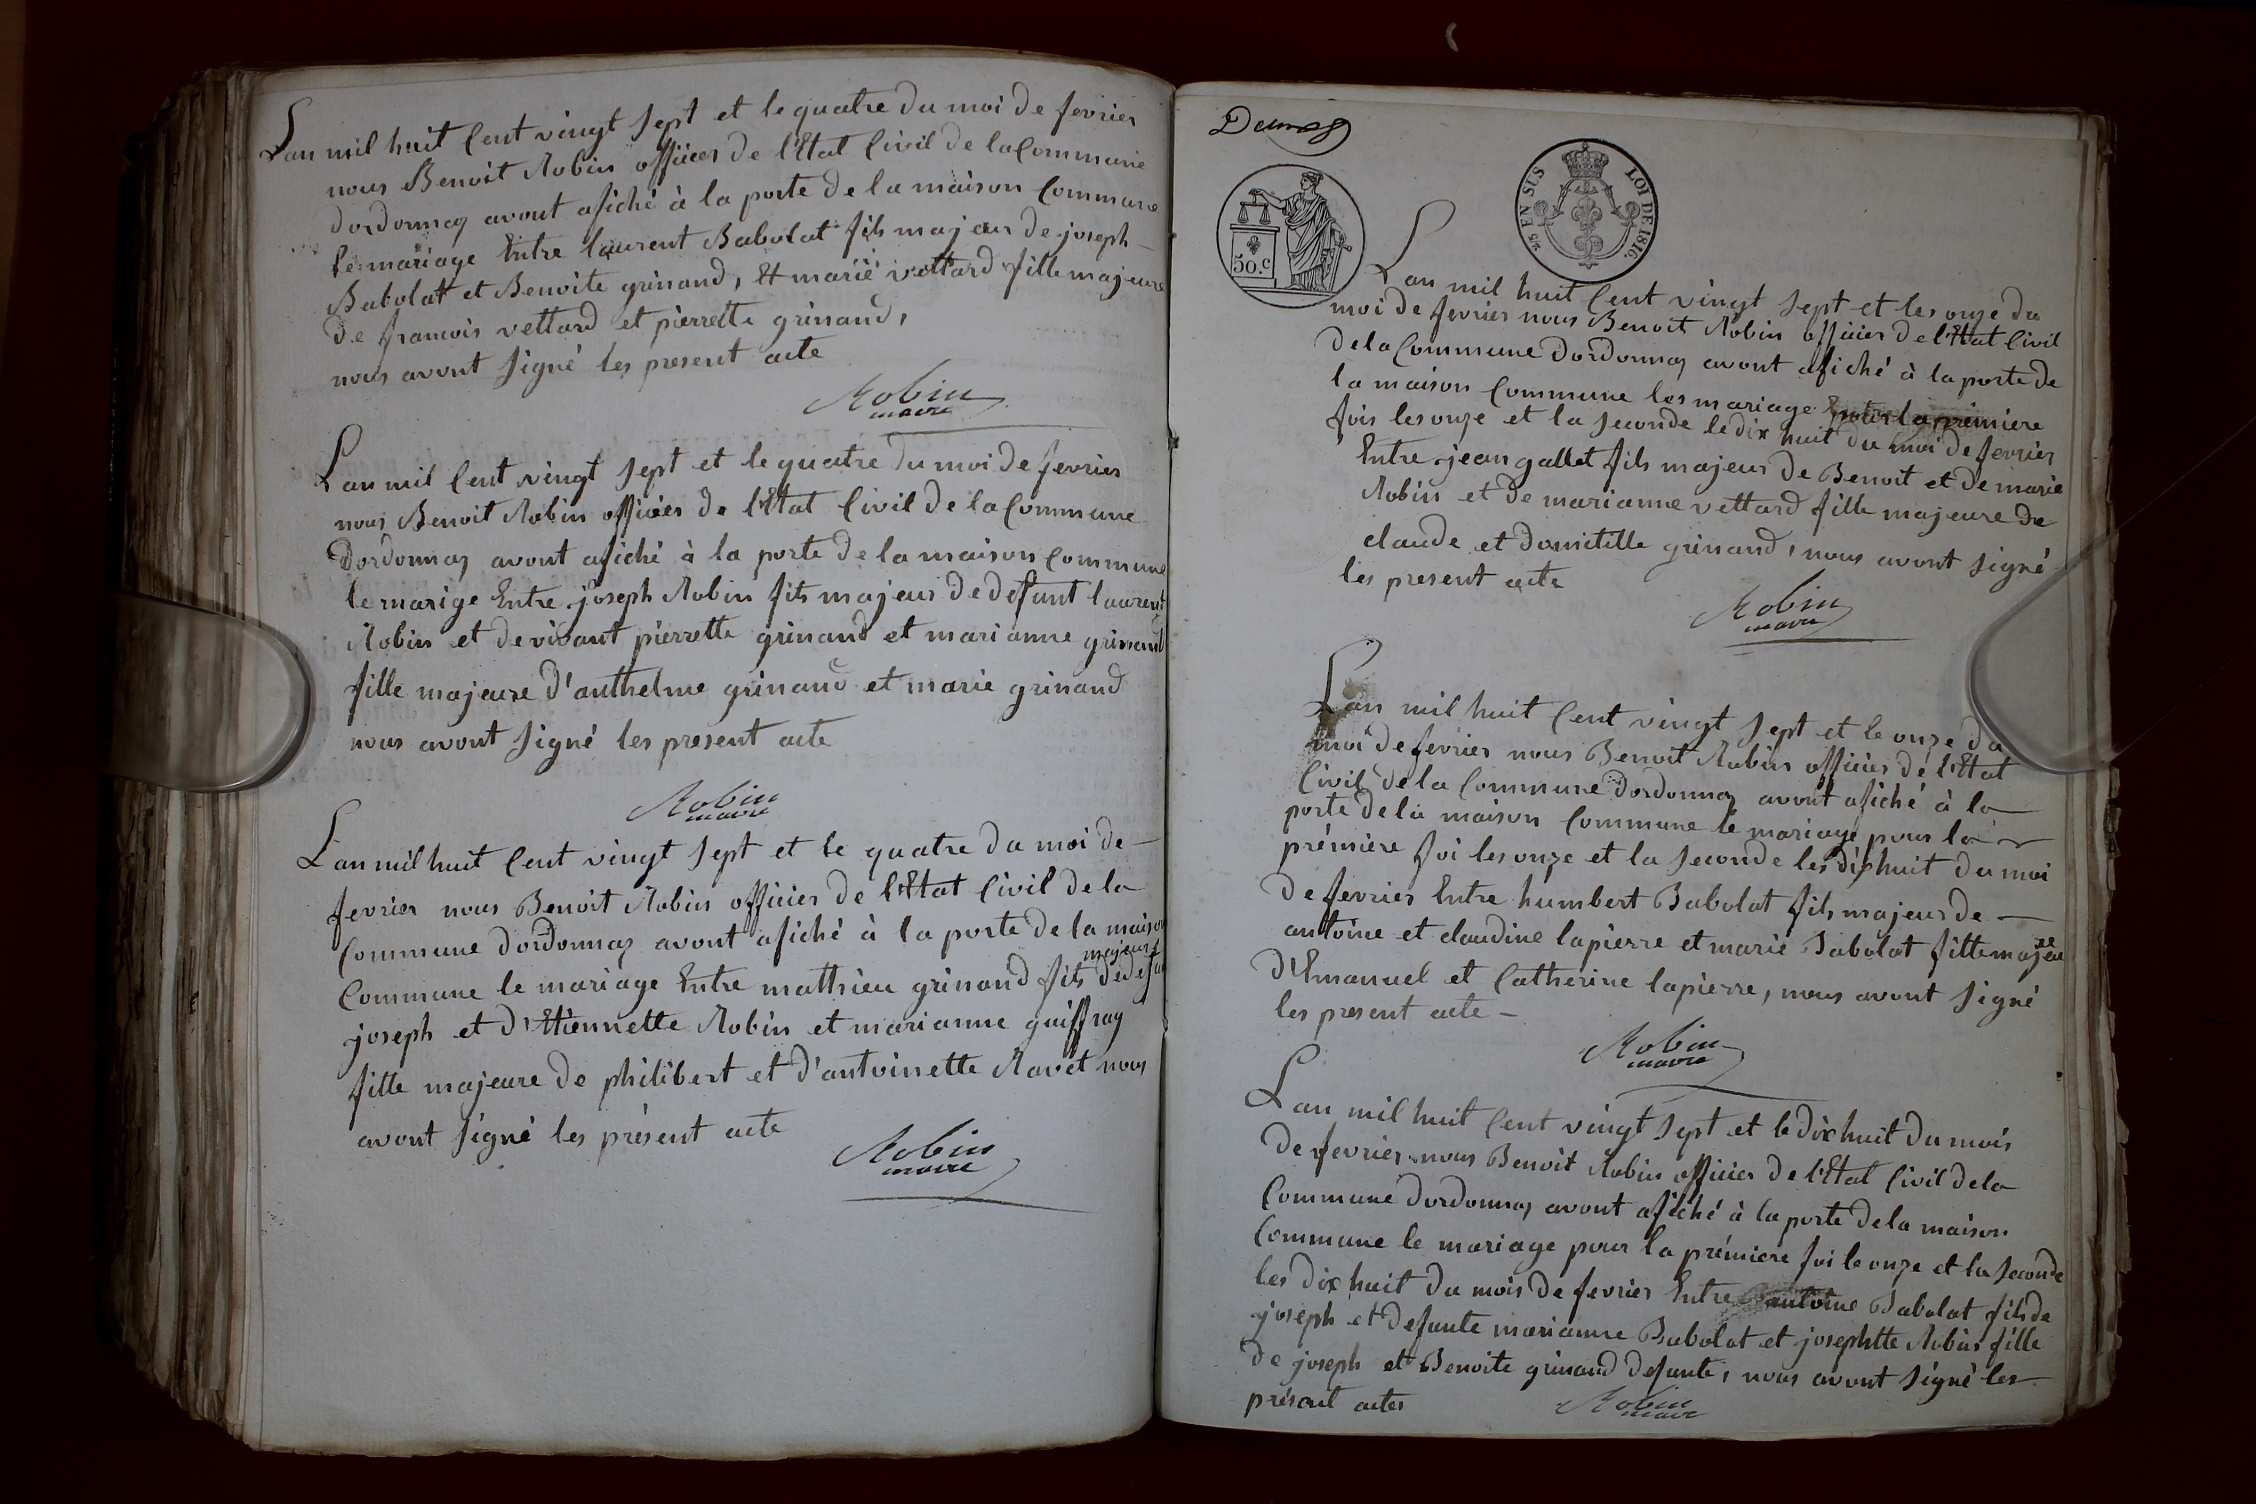 Lan mil huit Cent vingt sept et le quatre du moi de fevrier
nous Benoit Robin officier de l'Etat Civil de la Commune
dordonnaz avont afiché à la porte de la maison Commune
le mariage Entre laurent Babolat fils majeur de joseph
Babolat et Benoite grinand, et marie vettard fille majeure
de francois vettard et pierrette grinand,
nous avont signé les present acte
Robin
maire
Lan mil Cent vingt sept et le quatre du moi de fevrier
nous Benoit Robin officier de l'Etat Civil de la Commune
dordonnaz avont afiché à la porte de la maison Commune
le marige Entre joseph Robin fils majeur de defunt laurent
Robin et de vivant pierrette grinand et marianne grinand
fille majeure d'anthelme grinand et marie grinand
nous avont signé les present acte
Robin
maire
Lan mil huit Cent vingt sept et le quatre du moi de
fevrier nous Benoit Robin officier de l'Etat Civil de la
Commune dordonnaz avont afiché à la porte de la maison
majeur
Commune le mariage Entre mathieu grinand fils de
joseph et d'Etiennette Robin et marianne guiffray
fille majeure de philibert et d'antoinette Ravet nous
avont signé les présent acte
Robin
maire
EN SUS LOI DE 1816.
50.c
Lan mil huit Cent vingt sept et les onze du
moi de fevrier nous Benoit Robin officier de l'Etat Civil
de la Commune dordonnaz avont afiché à la porte de
la maison Commune les mariage pour la premiere
fois les onze et la seconde le dix huit du moi de fevrier
Entre jean gallet fils majeur de Benoit et de marie
Robin et de marianne vettard fille majeure de
claude et domitille grinand, nous avont signé
les present acte
Robin
maire
Lan mil huit Cent vingt sept et le onze du
moi de fevrier nous Benoit Robin officier de l'Etat
Civil de la Commune dordonnaz avont afiché à la
porte de la maison Commune le mariage pour la
prémiere foi les onze et la seconde les dix huit du moi
de fevrier Entre humbert Babolat fils majeur de
antoine et claudine lapierre et marie Babolat fille majeure
d'Emanuel et Catherine lapierre, nous avont signé
les present acte
Robin
maire
Lan mil huit Cent vingt sept et le dix huit du mois
de fevrier nous Benoit Robin officier de l'Etat Civil de la
Commune dordonnaz avont afiché à la porte de la maison
Commune le mariage pour la prémiere foi le onze et la seconde
les dix huit du mois de fevrier Entre antoine Babolat fils de
joseph et defunte marianne Babolat et josephtte Robin fille
de joseph et Benoite grinand defunte, nous avont signé les
présent actes
Robin
maire